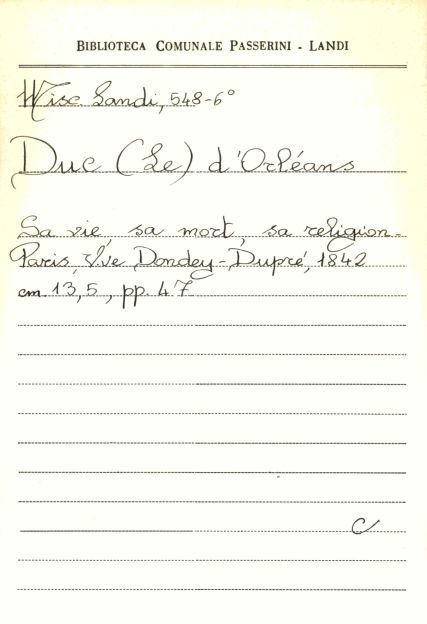 BIBLIOTECA COMUNALE PASSERINI - LANDI
Misc. Landi, 548-6°
Duc (Le) d'Orléans
Sa vie, sa mort, sa religion.
Paris, V.ve Dondey-Dupré, 1842
cm. 13,5, pp. 47
C